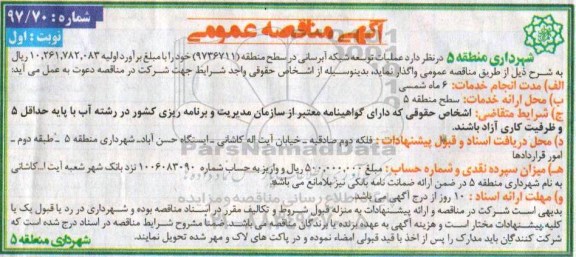 شماره : ۹۷/۷۰
نوبت : اول
آگهی مناقصه عمومی
شهرداری منطقه ۵ در نظر دارد عملیات توسعه شبکه آبرسانی در سطح منطقه (۹۷۳۶۷۱۱) خود را با مبلغ برآورد اولیه ۱۰,۲۶۱,۷۸۲,۰۸۳ ریال
به شرح ذیل از طریق مناقصه عمومی واگذار نماید، بدینوسیله از اشخاص حقوقی واجد شرایط جهت شرکت در مناقصه دعوت به عمل می آید:
الف) مدت انجام خدمات: ۶ ماه شمسی
ب) محل ارائه خدمات: سطح منطقه ۵
ج) شرایط متقاضی: اشخاص حقوقی که دارای گواهینامه معتبر از سازمان مدیریت و برنامه ریزی کشور در رشته آب با پایه حداقل ۵
و ظرفیت کاری آزاد باشند.
د) محل دریافت اسناد و قبول پیشنهادات : فلکه دوم صادقیه ـ خیابان آیت اله کاشانی ـ ایستگاه حسن آباد ـ شهرداری منطقه ۵ ـ طبقه دوم ـ
امور قراردادها
هـ) میزان سپرده نقدی و شماره حساب: مبلغ ۵۰۰,۰۰۰,۰۰۰ ریال و واریز به حساب شماره ۱۰۰۶۰۸۳۰۹۰ نزد بانک شهر شعبه آیت ا... کاشانی
به نام شهرداری منطقه ۵ در ضمن ارائه ضمانت نامه بانکی نیز بلامانع می باشد.
و) مهلت ارائه اسناد : ۱۰ روز از درج آگهی می باشد.
بدیهی است شرکت در مناقصه و ارائه پیشنهادات به منزله قبول شروط و تکالیف مقرر در اسناد مناقصه بوده و شهرداری در رد یا قبول یک یا
کلیه پیشنهادات مختار است و هزینه آگهی به عهده برنده یا برندگان مناقصه می باشد. ضمنا مشروح شرایط مناقصه در اسناد درج شده است که
شرکت کنندگان باید مدارک را پس از اخذ با قید قبولی امضاء نموده و در پاکت های لاک و مهر شده تحویل نمایند.
شهرداری منطقه ۵
ParsNamadData